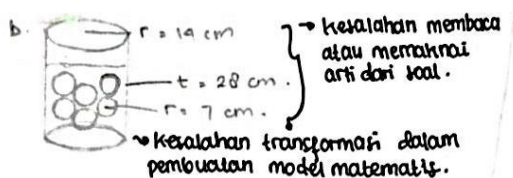 b.
r = 14 cm
t = 28 cm.
r = 7 cm.
→ Kesalahan membaca
atau memaknai
arti dari soal.
→ Kesalahan transformasi dalam
pembuatan model matematis.